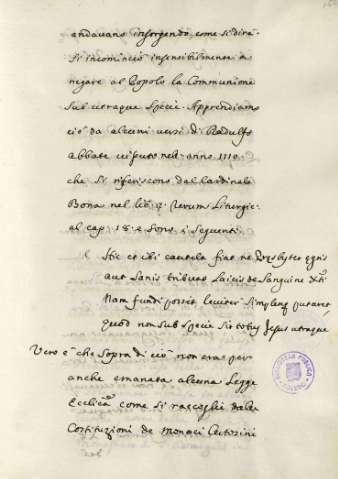 andavano insorgendo, come si dirà
si incominciò insensibilmente a
negare al Popolo la Communione
sub utraque specie. Apprendiamo
ciò da alcuni versi di Rodulfo
abbate vissuto nell'anno 1110
che si riferiscono dal Cardinale
Bona nel lib. 2. Rerum Liturgic.
al cap. 18. e sono i seguenti
Hic et ibi cautela fiat ne Presbyter egris
aut sanis tribuat Laicis de sanguine Xti
Nam fundi posset leviter simplexq putaret
Quod non sub specie sit totus Jesus utraque
Vero è che sopra di ciò non era per
anche emanata alcuna Legge
Ecclica come si raccoglie dalle
Costituzioni de Monaci Certosini